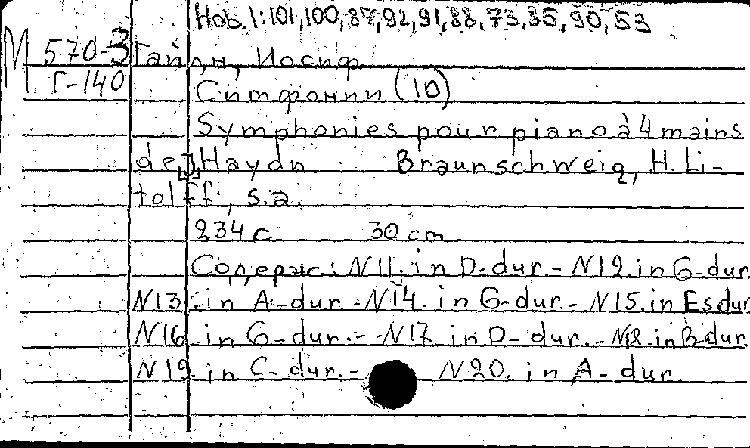 Hob. 1:101,100,87,92,91,88,73,85,90,53
М 570-3 Гайдн, Иосиф
Г-140
Симфонии (10)
Symphonies pour piano à 4 mains
de J. Haydn Braunschweig, H. Li-
tolff, s.a.
234 с. 30 cm
Содерж.: N11. in D-dur.- N12. in G-dur
N13. in A-dur.-N14. in G-dur.- N15. in Es dur
N16. in G-dur.- N17. in D-dur.- N18. in B-dur
N19. in C-dur.- N20. in A-dur.